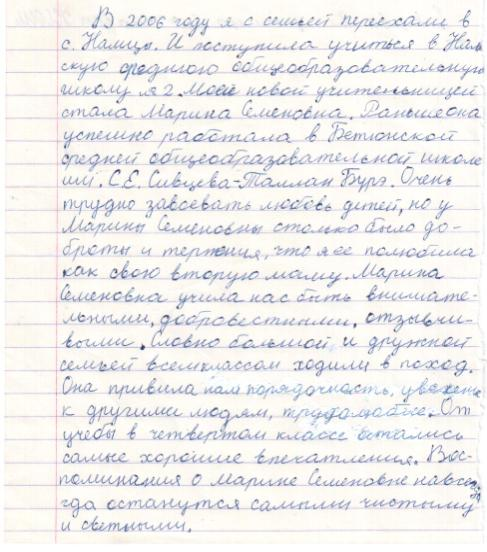 В 2006 году я с семьей переехали в
с. Намцы. И поступила учиться в Нам-
скую среднюю общеобразовательную
школу №2. Моей новой учительницей
стала Марина Семеновна. Раньше она
успешно работала в Бетюнской
средней общеобразовательной школе
им. С.Е. Сивцева-Таллан Бүрэ. Очень
трудно завоевать любовь детей, но у
Марины Семеновны столько было до-
броты и терпения, что я ее полюбила
как свою вторую маму. Марина
Семеновна учила нас быть внимате-
льными, добровестными, отзывчи-
выми. Словно большой и дружной
семьей всем классом ходили в поход.
Она привила нам порядочность, уважение
к другими людям, трудолюбие. От
учебы в четвертом классе остались
самые хорошие впечатления. Вос-
поминания о Марине Семеновне навсе-
гда останутся самыми чистыми
и светлыми.